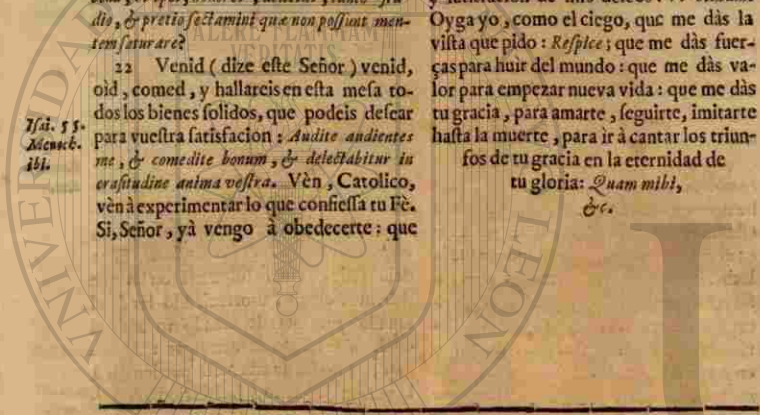 dio, & pretio sectamini quæ non possunt men-
tem saturare?
22 Venid (dize este Señor) venid,
oìd, comed, y hallareis en esta mesa to-
dos los bienes solidos, que podeis desear
para vuestra satisfacion: Audite audientes
me, & comedite bonum, & delectabitur in
crasitudine anima vestra. Vèn, Catolico,
vèn à experimentar lo que confiessa tu Fè.
Si, Señor, yà vengo à obedecerte: que
Isai. 55.
Mensch.
ibi.
Oyga yo, como el ciego, que me dàs la
vista que pido: Respice; que me dàs fuer-
ças para huir del mundo: que me dàs va-
lor para empezar nueva vida: que me dàs
tu gracia, para amarte, seguirte, imitarte
hasta la muerte, para ir à cantar los triun-
fos de tu gracia en la eternidad de
tu gloria: Quam mihi,
&c.
ALERE FLAMMAM
VERITATIS